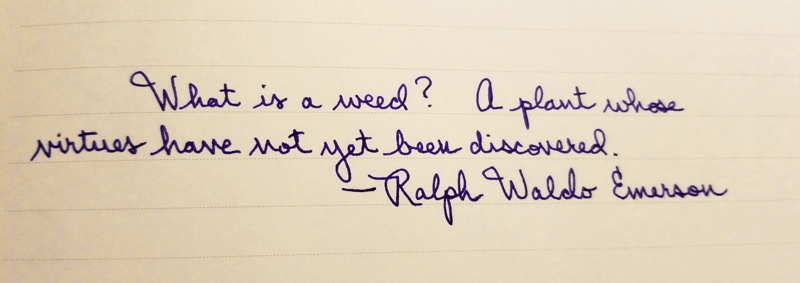 What is a weed? A plant whose
virtues have not yet been discovered.
—Ralph Waldo Emerson